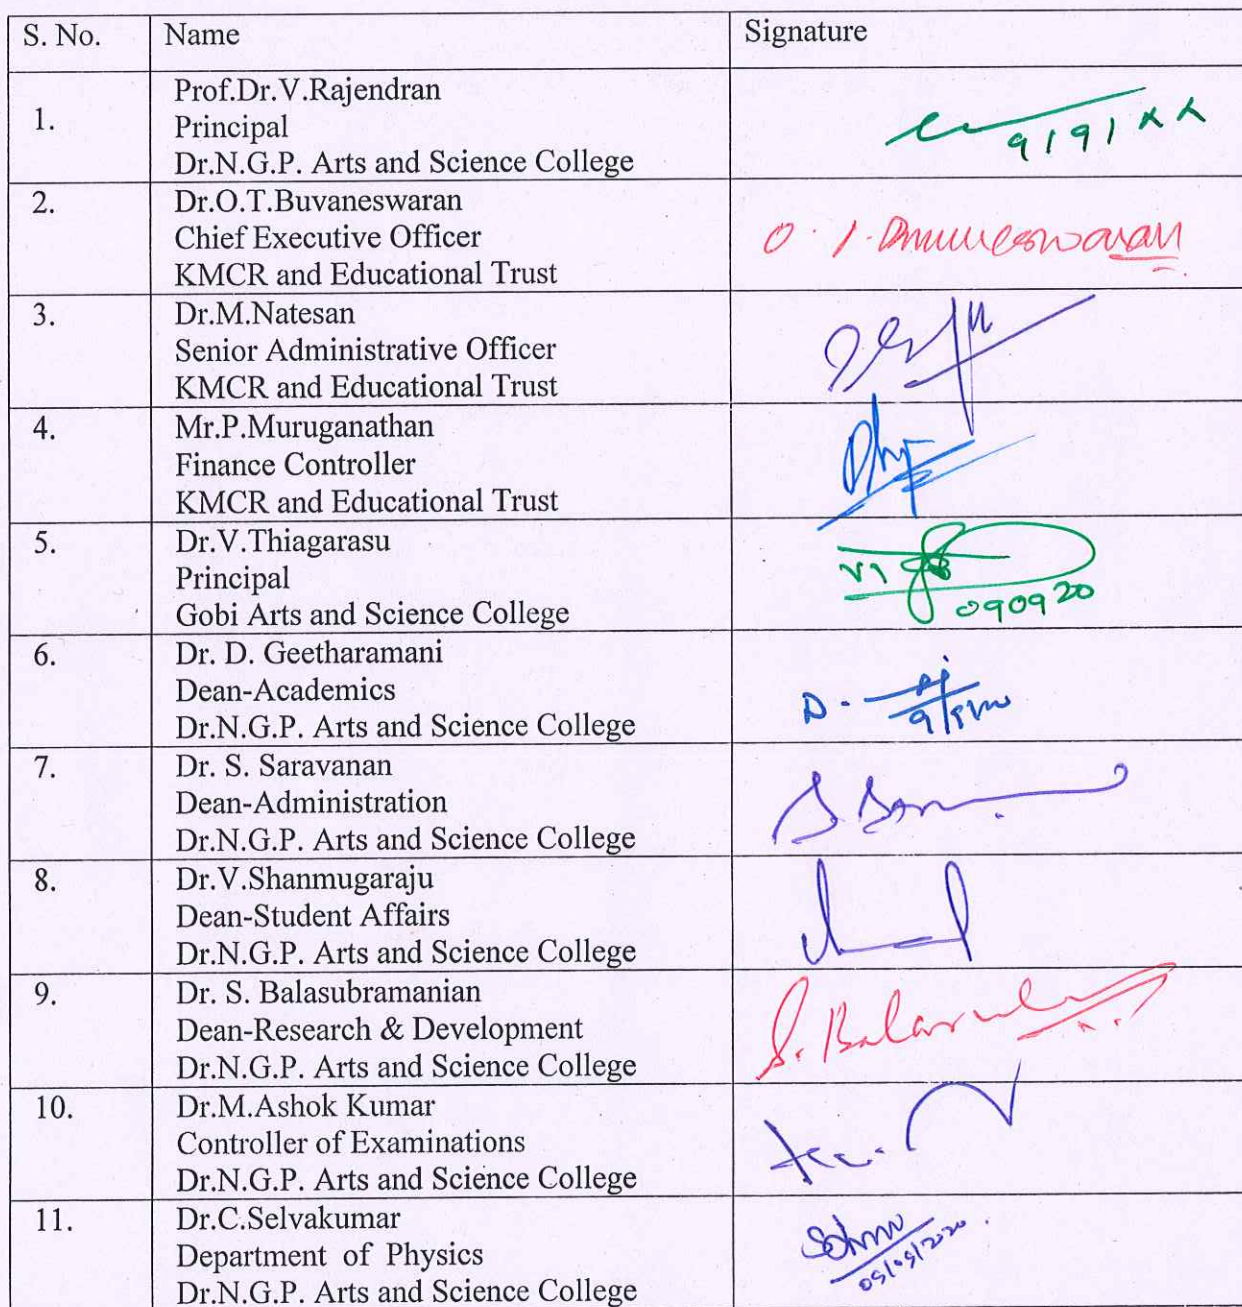 S. No. Name Signature
Prof.Dr.V.Rajendran
1. Principal
Dr.N.G.P. Arts and Science College
2. Dr.O.T.Buvaneswaran
Chief Executive Officer
KMCR and Educational Trust
3. Dr.M.Natesan
Senior Administrative Officer
KMCR and Educational Trust
4. Mr.P.Muruganathan
Finance Controller
KMCR and Educational Trust
5. Dr.V.Thiagarasu
Principal
Gobi Arts and Science College 090920
6. Dr. D. Geetharamani
Dean-Academics
Dr.N.G.P. Arts and Science College
7. Dr. S. Saravanan
Dean-Administration
Dr.N.G.P. Arts and Science College
8. Dr.V.Shanmugaraju
Dean-Student Affairs
Dr.N.G.P. Arts and Science College
9. Dr. S. Balasubramanian
Dean-Research & Development
Dr.N.G.P. Arts and Science College
10. Dr.M.Ashok Kumar
Controller of Examinations
Dr.N.G.P. Arts and Science College
11. Dr.C.Selvakumar
Department of Physics
Dr.N.G.P. Arts and Science College